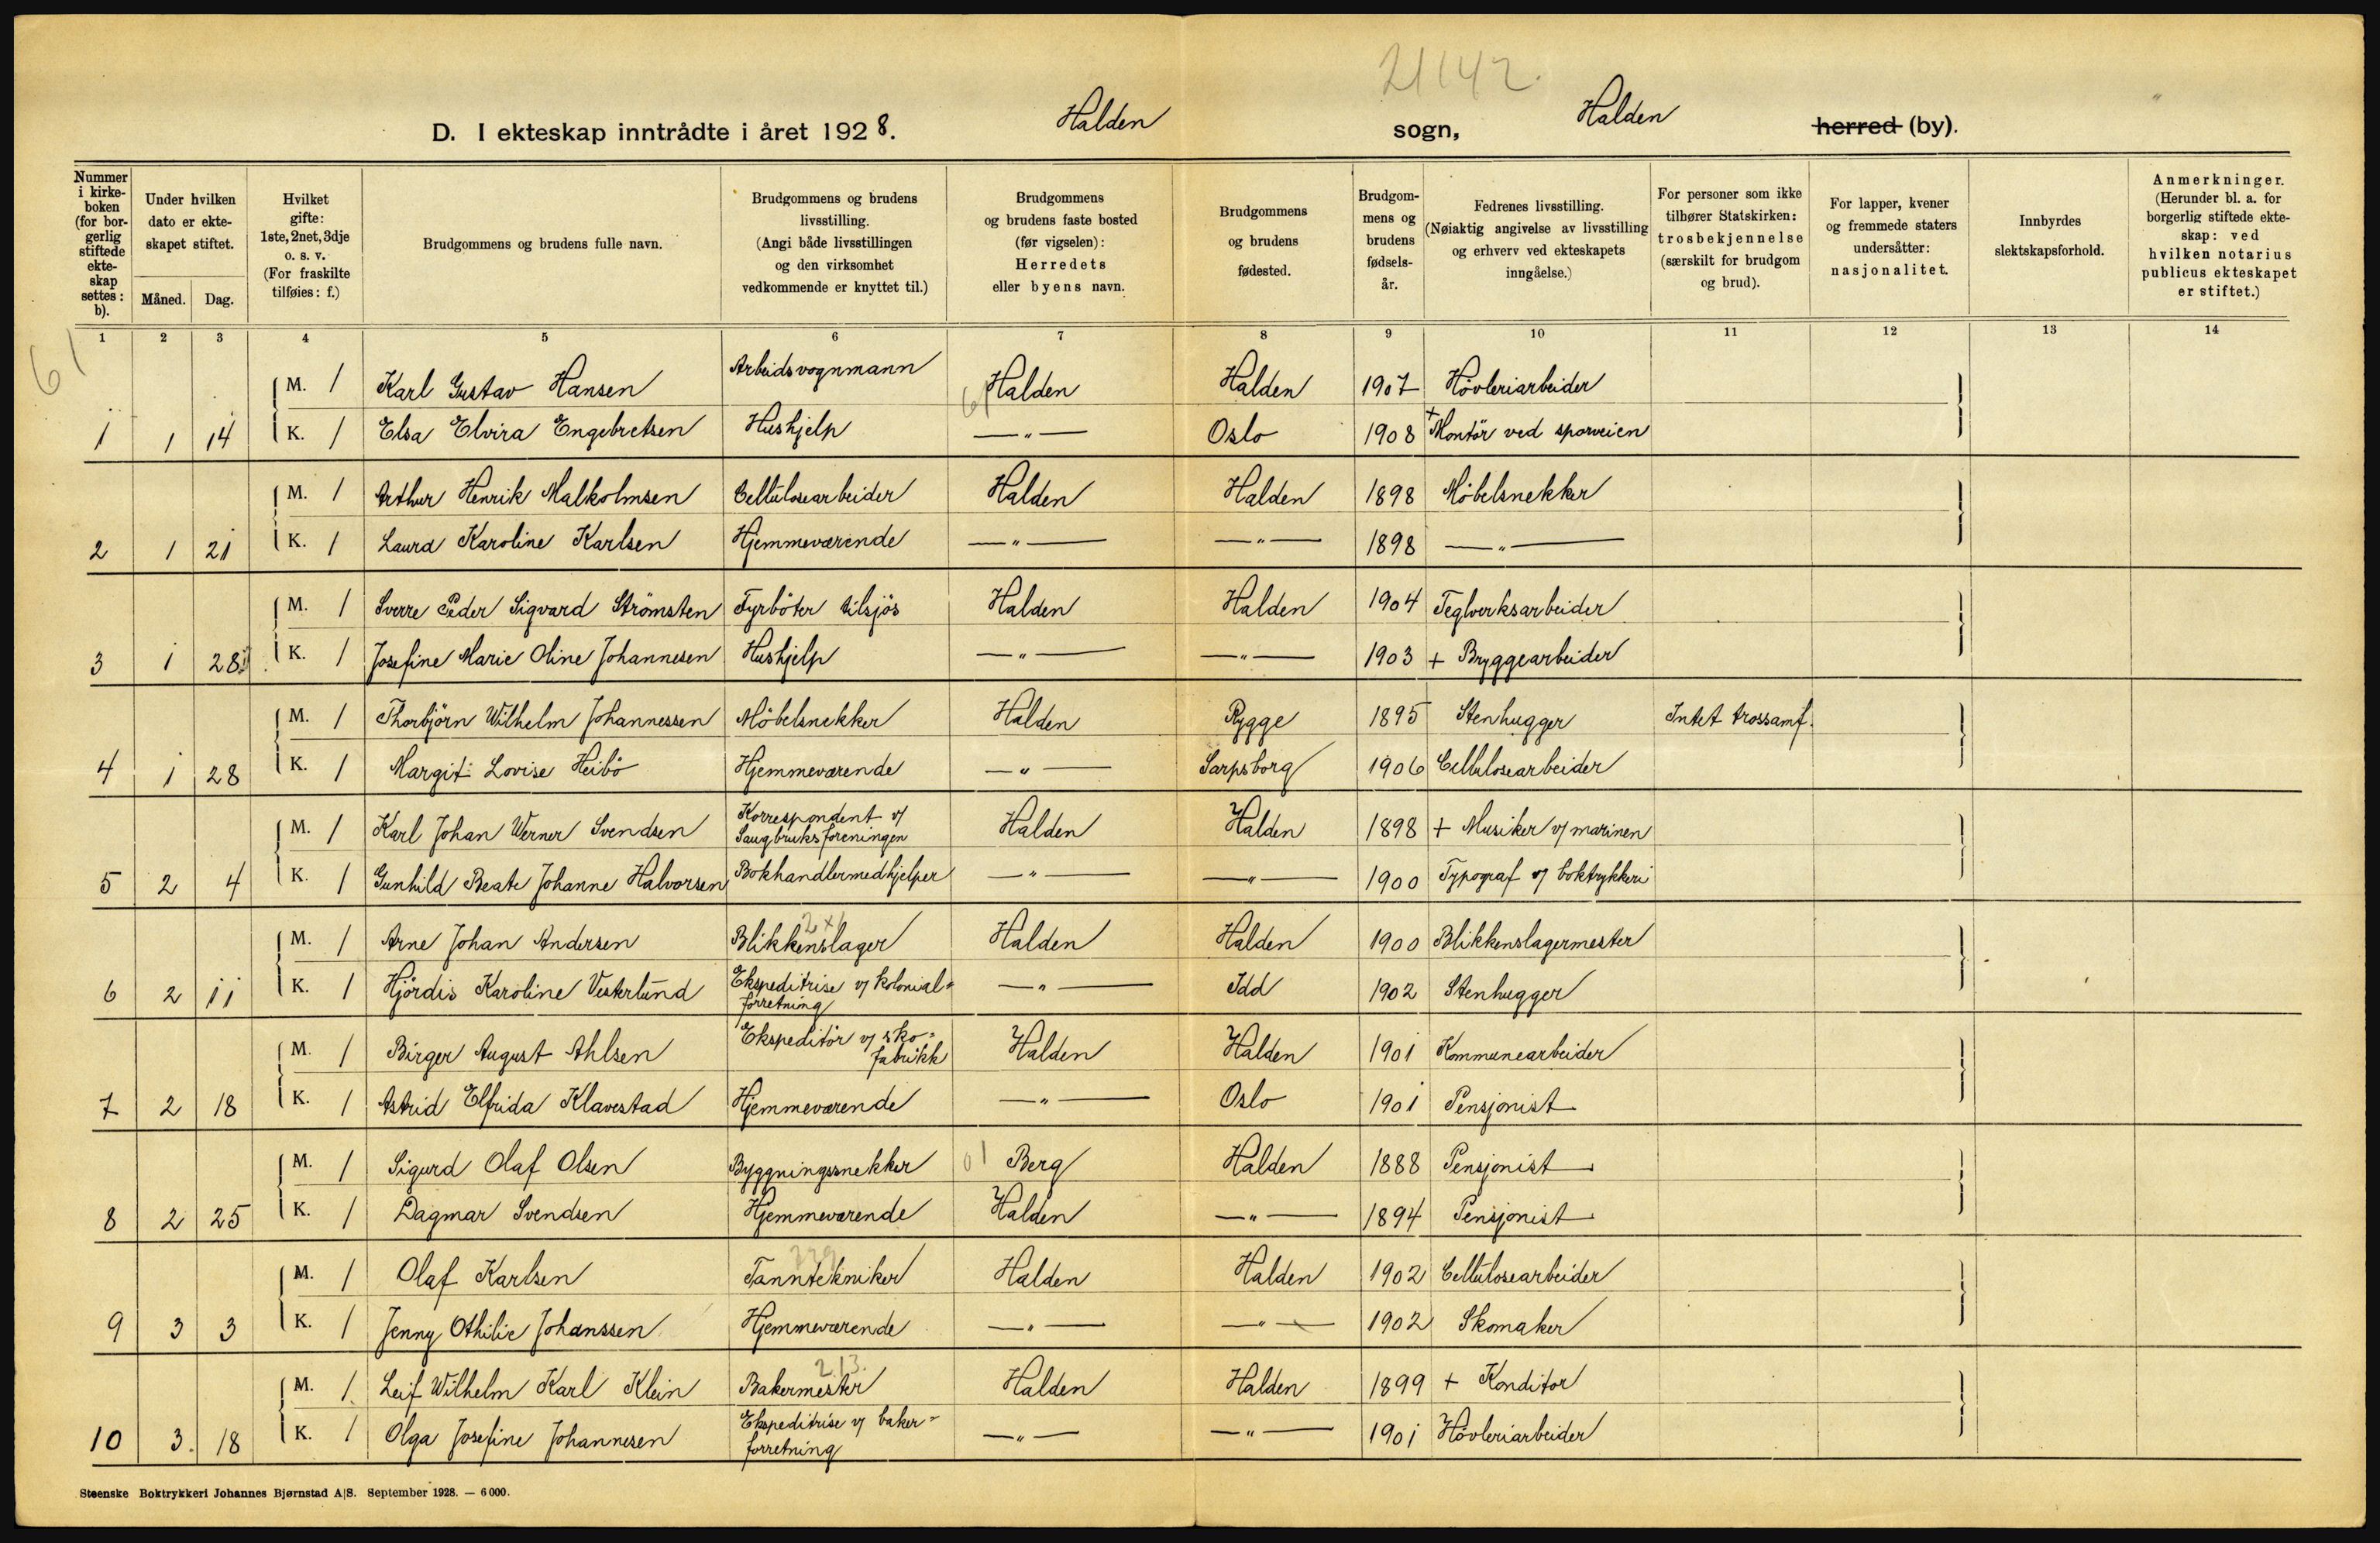 21142.
D. I ekteskap inntrådte i året 1928. Halden sogn, Halden herred (by).
Nummer i kirkeboken (for borgerlig stiftede ekteskap settes: b).
Under hvilken dato er ekteskapet stiftet.
Måned. Dag.
Hvilket gifte: 1ste, 2net, 3dje o. s. v. (For fraskilte tilføies: f.)
Brudgommens og brudens fulle navn.
Brudgommens og brudens livsstilling. (Angi både livsstillingen og den virksomhet vedkommende er knyttet til.)
Brudgommens og brudens faste bosted (før vigselen): Herredets eller byens navn.
Brudgommens og brudens fødested.
Brudgommens og brudens fødselsår.
Fedrenes livsstilling. (Nøiaktig angivelse av livsstilling og erhverv ved ekteskapets inngåelse.)
For personer som ikke tilhører Statskirken: trosbekjennelse (særskilt for brudgom og brud).
For lapper, kvener og fremmede staters undersåtter: nasjonalitet.
Innbyrdes slektskapsforhold.
Anmerkninger. (Herunder bl. a. for borgerlig stiftede ekteskap: ved hvilken notarius publicus ekteskapet er stiftet.)
1 2 3 4 5 6 7 8 9 10 11 12 13 14
61
M. 1 Karl Gustav Hansen Arbeidsvognmann 61 Halden Halden 1907 Høvleriarbeider
1 1 14 K. 1 Elsa Elvira Engebretsen Hushjelp —"— Oslo 1908 + Montör ved sporveien
M. 1 Arthur Henrik Malkolmsen Cellulosearbeider Halden Halden 1898 Möbelsnekker
2 1 21 K. 1 Laura Karoline Karlsen Hjemmeværende —"— —"— 1898 —"—
M. 1 Sverre Peder Sigvard Strömsten Fyrböter tilsjös Halden Halden 1904 Teglverksarbeider
3 1 28 K. 1 Josefine Marie Oline Johannesen Hushjelp —"— —"— 1903 + Bryggearbeider
M. 1 Thorbjörn Wilhelm Johannessen Möbelsnekker Halden Rygge 1895 Stenhugger Intet trossamf.
4 1 28 K. 1 Margit Lovise Heibö Hjemmeværende —"— Sarpsborg 1906 Cellulosearbeider
M. 1 Karl Johan Werner Svendsen Korrespondent v/ Saugbruksforeningen Halden Halden 1898 + Musiker v/ marinen
5 2 4 K. 1 Gunhild Beate Johanne Halvorsen Bokhandlermedhjelper —"— —"— 1900 Typograf v/ boktrykkeri
M. 1 Arne Johan Andersen Blikkenslager Halden Halden 1900 Blikkenslagermester
6 2 11 K. 1 Hjördis Karoline Vesterlund Ekspeditrise v/ kolonial= forretning —"— Idd 1902 Stenhugger
M. 1 Birger August Ahlsen Ekspeditör v/ sko= fabrikk Halden Halden 1901 Kommunearbeider
7 2 18 K. 1 Astrid Elfrida Klavestad Hjemmeværende —"— Oslo 1901 Pensjonist
M. 1 Sigurd Olaf Olsen Byggningssnekker 01 Berg Halden 1888 Pensjonist
8 2 25 K. 1 Dagmar Svendsen Hjemmeværende Halden —"— 1894 Pensjonist
M. 1 Olaf Karlsen Tanntekniker Halden Halden 1902 Cellulosearbeider
9 3 3 K. 1 Jenny Othilie Johanssen Hjemmeværende —"— —"— 1902 Skomaker
213.
M. 1. Leif Wilhelm Karl Klein Bakermester Halden Halden 1899 + Konditor
10 3. 18 K. 1 Olga Josefine Johannesen Ekspeditrise v/ baker= forretning —"— —"— 1901 Høvleriarbeider
Steenske Boktrykkeri Johannes Bjørnstad A|S. September 1928. — 6000.